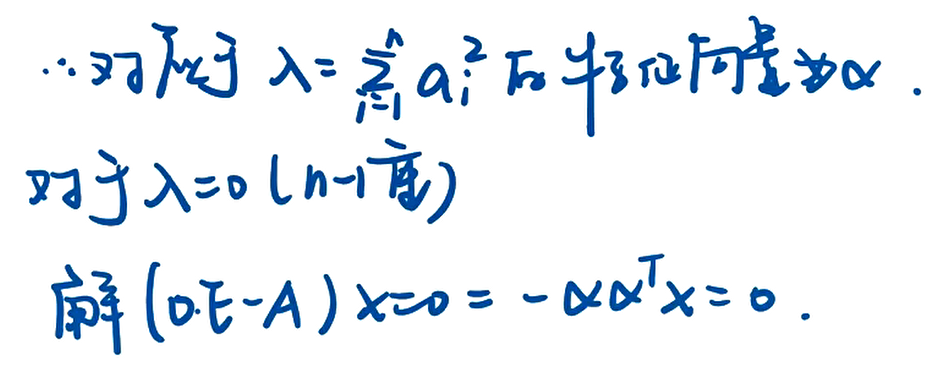 ∴对应于 λ=∑_{i=1}^{n} a_i^2 的特征向量为α.
对于 λ=0 (n-1重)
解 (0·E-A)x=0 = -αα^T x=0.